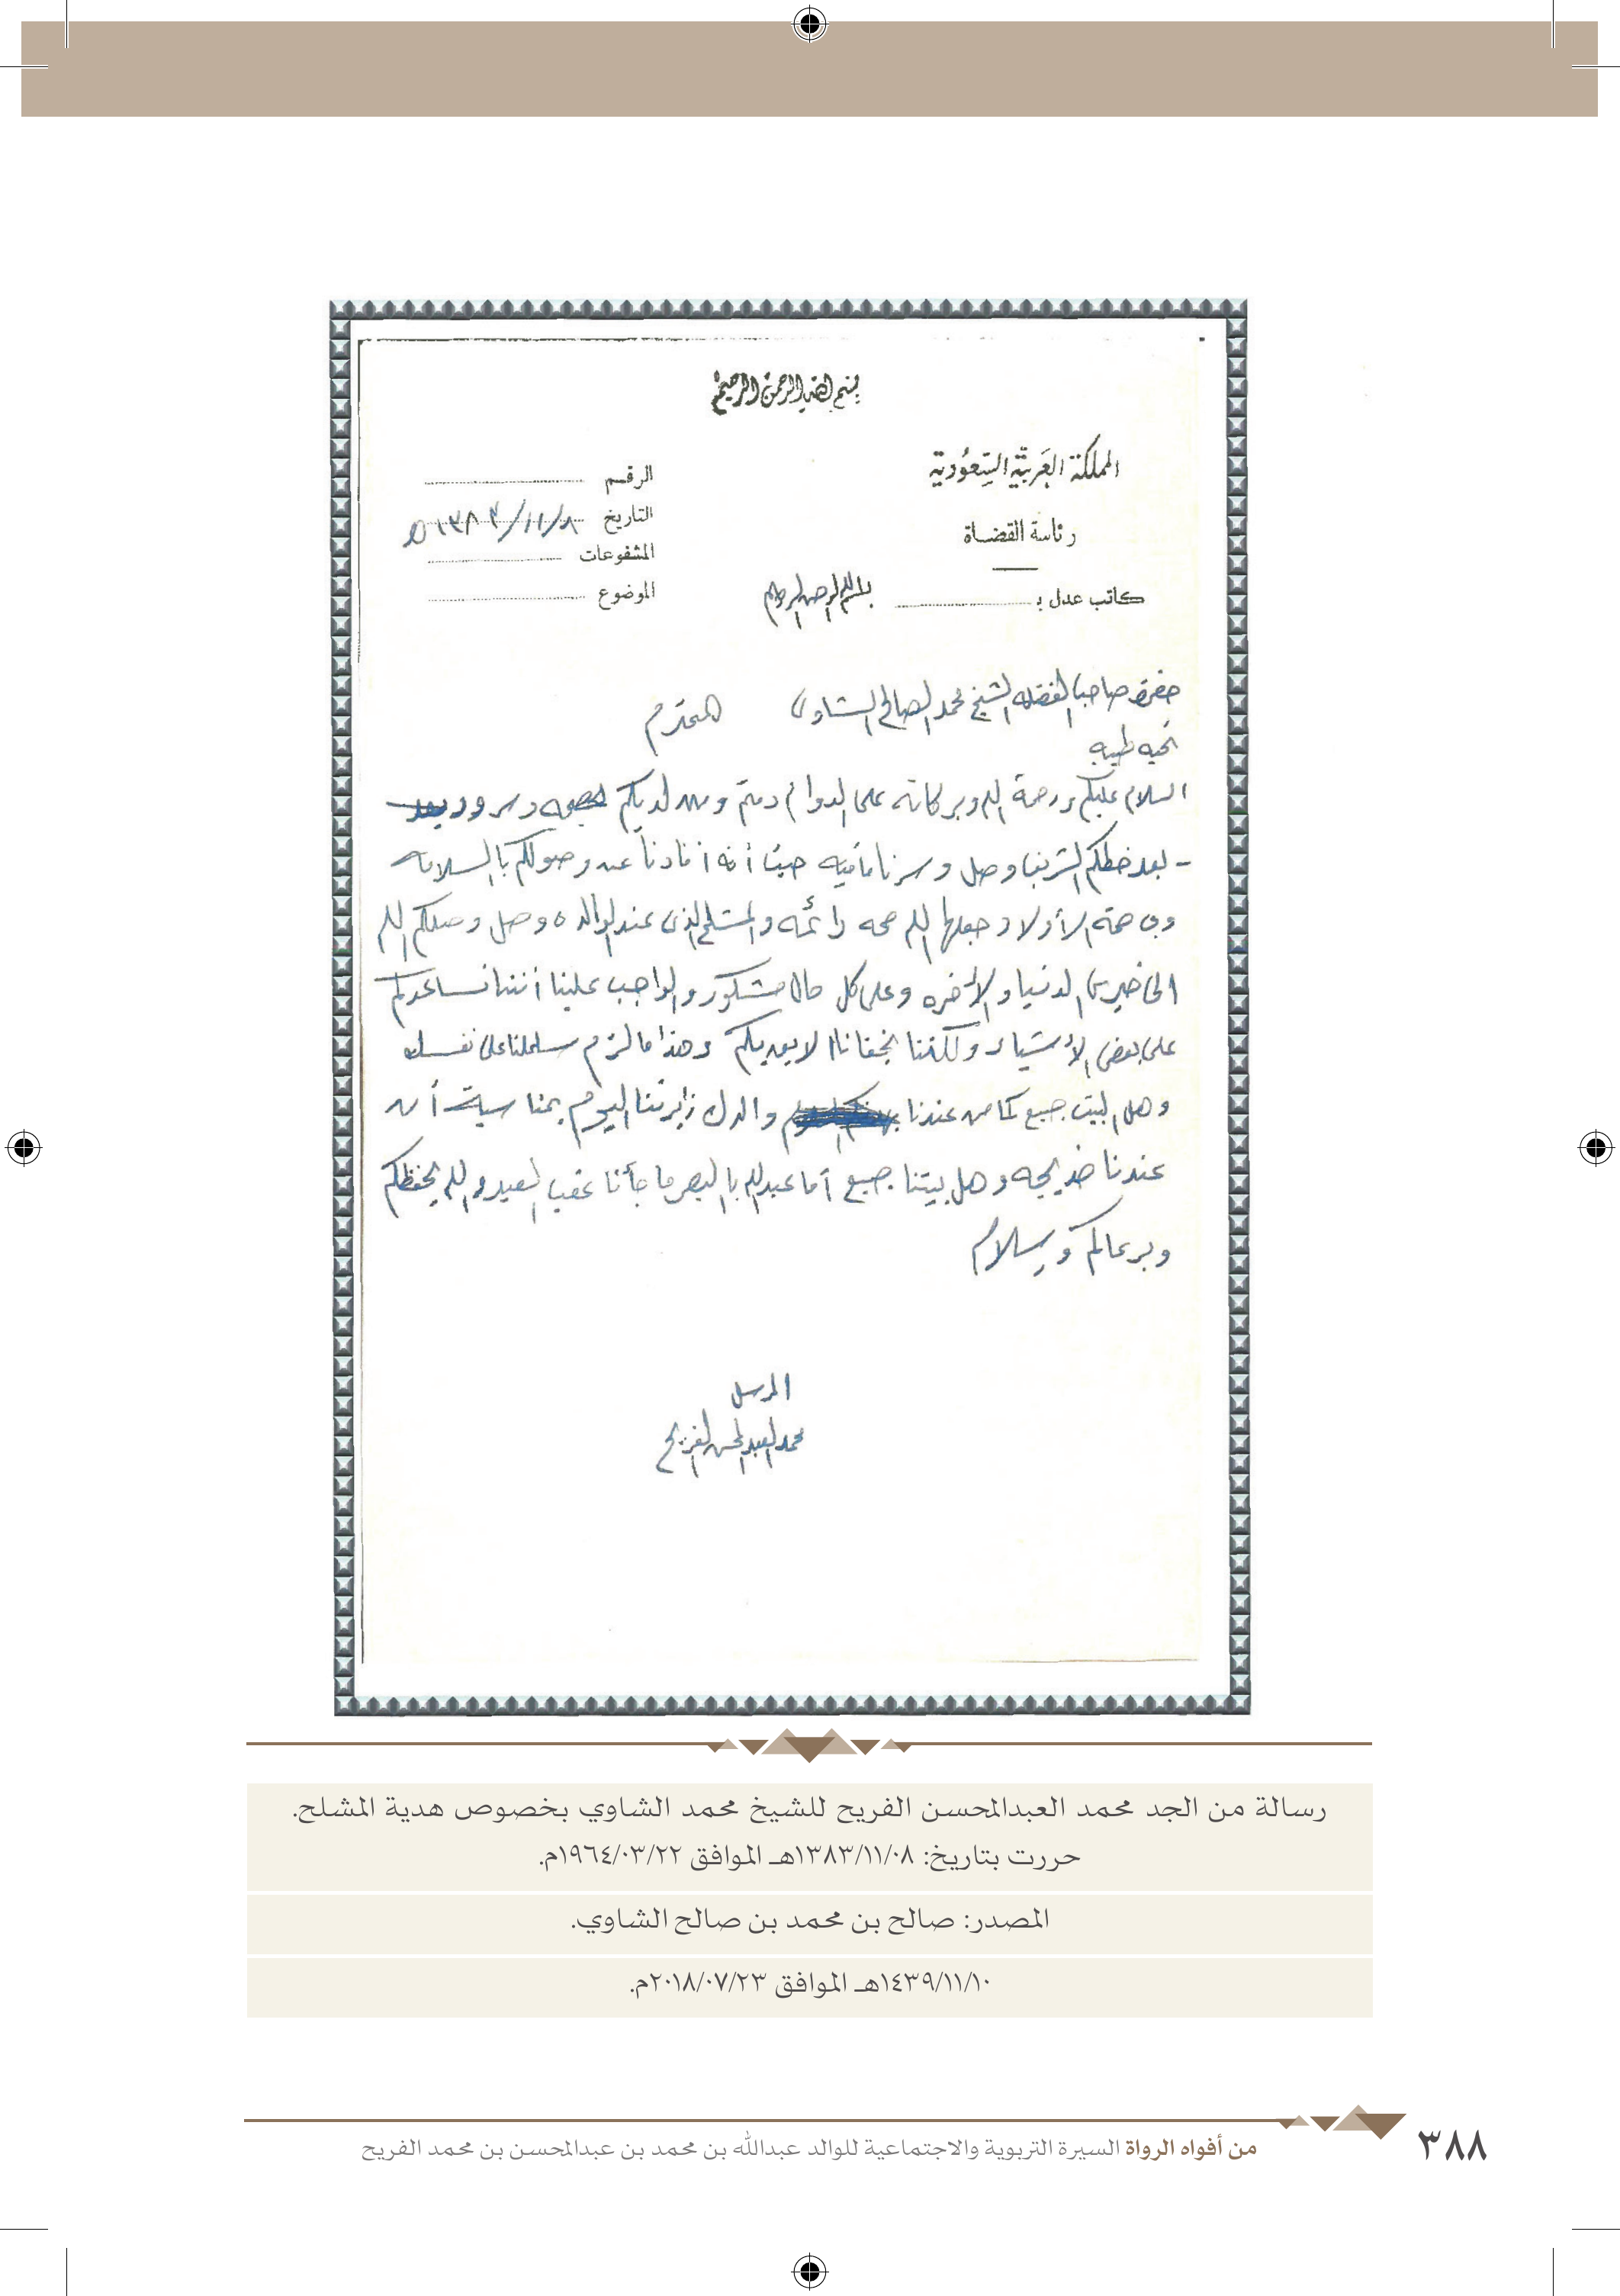 بسم الله الرحمن الرحيم
المملكة العربية السعودية
رئاسة القضاة
كاتب عدل بـ
الرقم
التاريخ ١٣٨٣/١١/٨هـ
المشفوعات
الموضوع
بسم الله الرحمن الرحيم
حضرة صاحب الفضيله الشيخ محمد الصالح الشاوي المحترم
تحيه طيبه
السلام عليكم ورحمة الله وبركاته على الدوام دمتم ومن لديكم بصحه وسرور
- بعد خطكم الشريف وصل وسرنا مافيه حيث أنه أفادنا عن وصولكم بالسلامه
وعن صحة الأولاد جعلها الله صحه دائمه والمشلح الذي عند الوالده وصل وصلكم الله
الى خيري الدنيا والأخره وعلى كل حال مشكور والواجب علينا أننا نساعدكم
على بعض الأشياء ولكننا الا بعد يكم وهذا مالزم سلملنا على نفسك
وهل البيت جميع كما من عندنا والدك زايرتنا اليوم بمناسبة أن
عندنا خديجه وهل بيتنا جميع أما عبدالله بالبصر ما جأنا عقب العيد والله يحفظكم
ويرعاكم وسلام
المرسل
محمد العبدالمحسن الفريح
رسالة من الجد محمد العبدالمحسن الفريح للشيخ محمد الشاوي بخصوص هدية المشلح.
حررت بتاريخ: ١٣٨٣/١١/٠٨هـ الموافق ١٩٦٤/٠٣/٢٢م.
المصدر: صالح بن محمد بن صالح الشاوي.
١٤٣٩/١١/١٠هـ الموافق ٢٠١٨/٠٧/٢٣م.
من أفواه الرواة السيرة التربوية والاجتماعية للوالد عبدالله بن محمد بن عبدالمحسن بن محمد الفريح
٣٨٨